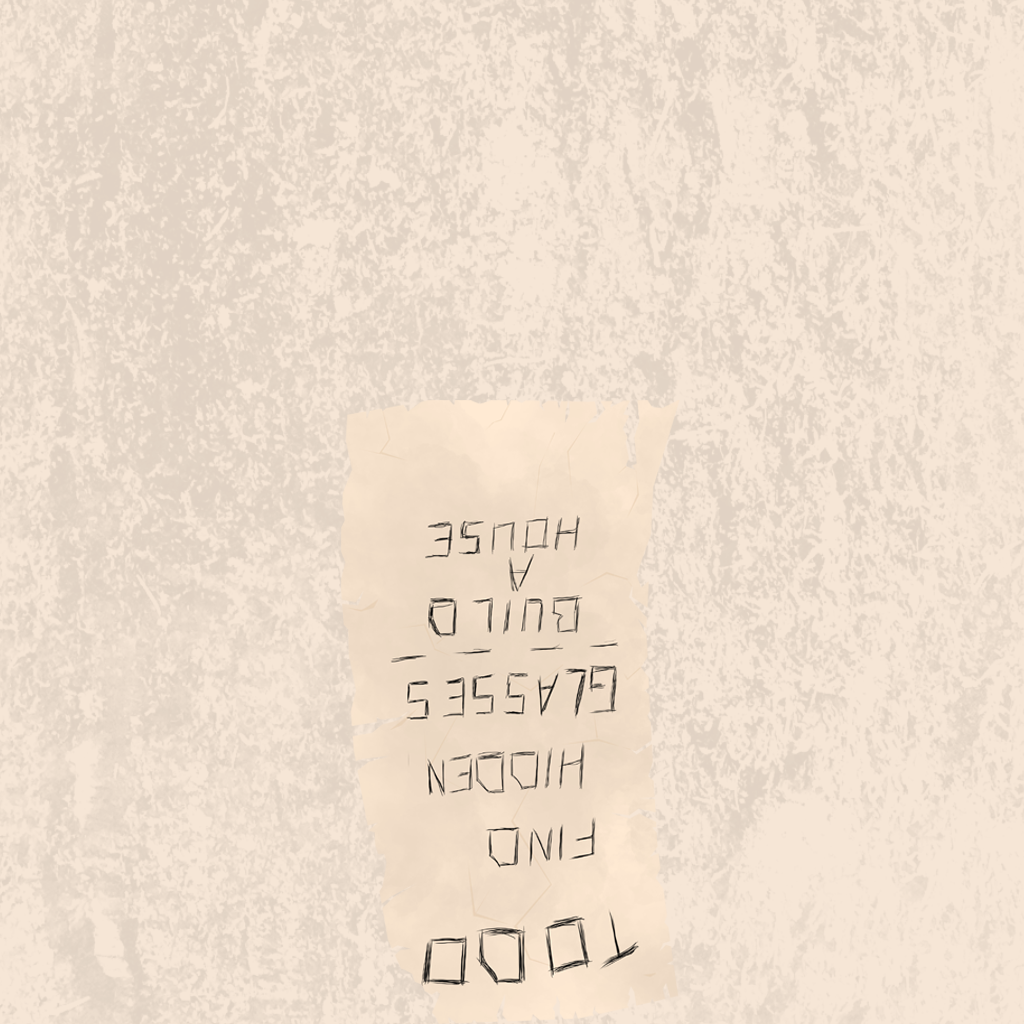 TODO
FIND
HIDDEN
GLASSES
_ _ _ _
BUILD
A
HOUSE